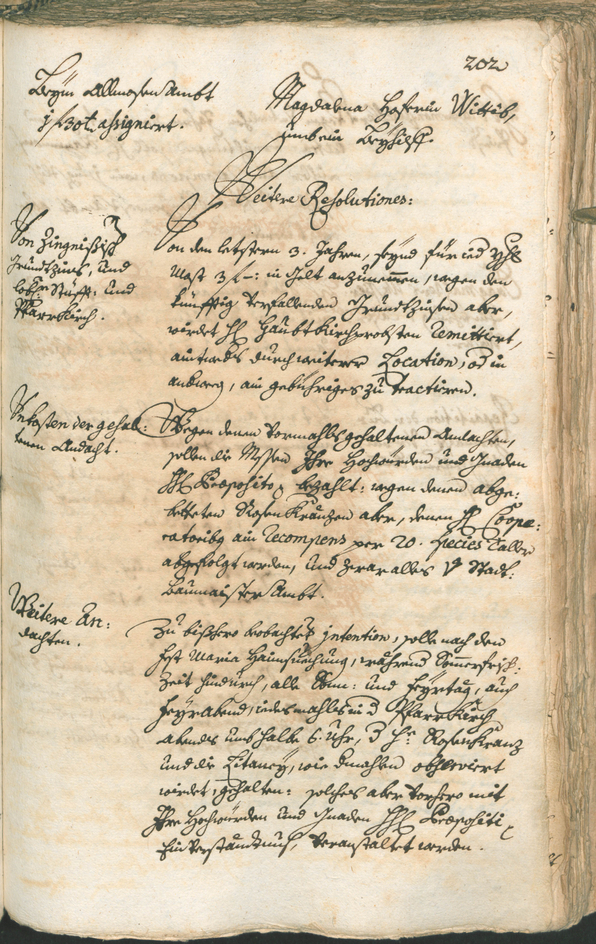 202
Beÿm Allmosen Ambt
j f 30 t. assigniert.
Magdalena Hoferin Wittib,
umb ein Beÿhilff.
Weitere Resolutiones:
Von
Grundtzins, und
und
Pfarrkirch.
Von den letstern 3. Jahren, seÿnd für jed
Mast 3 f –: in Gelt anzunemmen, wegen den
künfftig verfallenden Grundtzinsen aber,
würdet H. Haubt Kirchprobsten remittiert,
durch weitere Location, od in
anderweg, ain gebühriges zu tractieren.
Unkosten der gehal:
tenen Andacht.
Wegen denen vormahls gehaltenen Andachten,
sollen die Messen Ihro Hochwürden und Gnaden
H. Præposito bezahlt: wegen denen abge:
betteten Rosen Kränzen aber, denen H. Coope:
ratoribus ain Recompens per 20. Species Taller
abgefolgt werden, und zwar alles Stadt:
Baumaister Ambt.
Weitere An:
dachten.
Zu bishero beobachter intention, solle nach dem
Fest Maria Haimsuechung, während Somerfrisch:
Zeit hindurch, alle Sonn: und Feÿrtag, auch
Feÿrabend, iedesmahls in d Pfarrkirch
abendts umb halbe 6. Uhr, d H: Rosen Kranz
und die Litaneÿ, wie dmahlen observiert
würdet, gehalten: solches aber vorhero mit
Ihro Hochwürden und Gnaden H. Præpositi
Einverständtnus, veranstaltet werden.